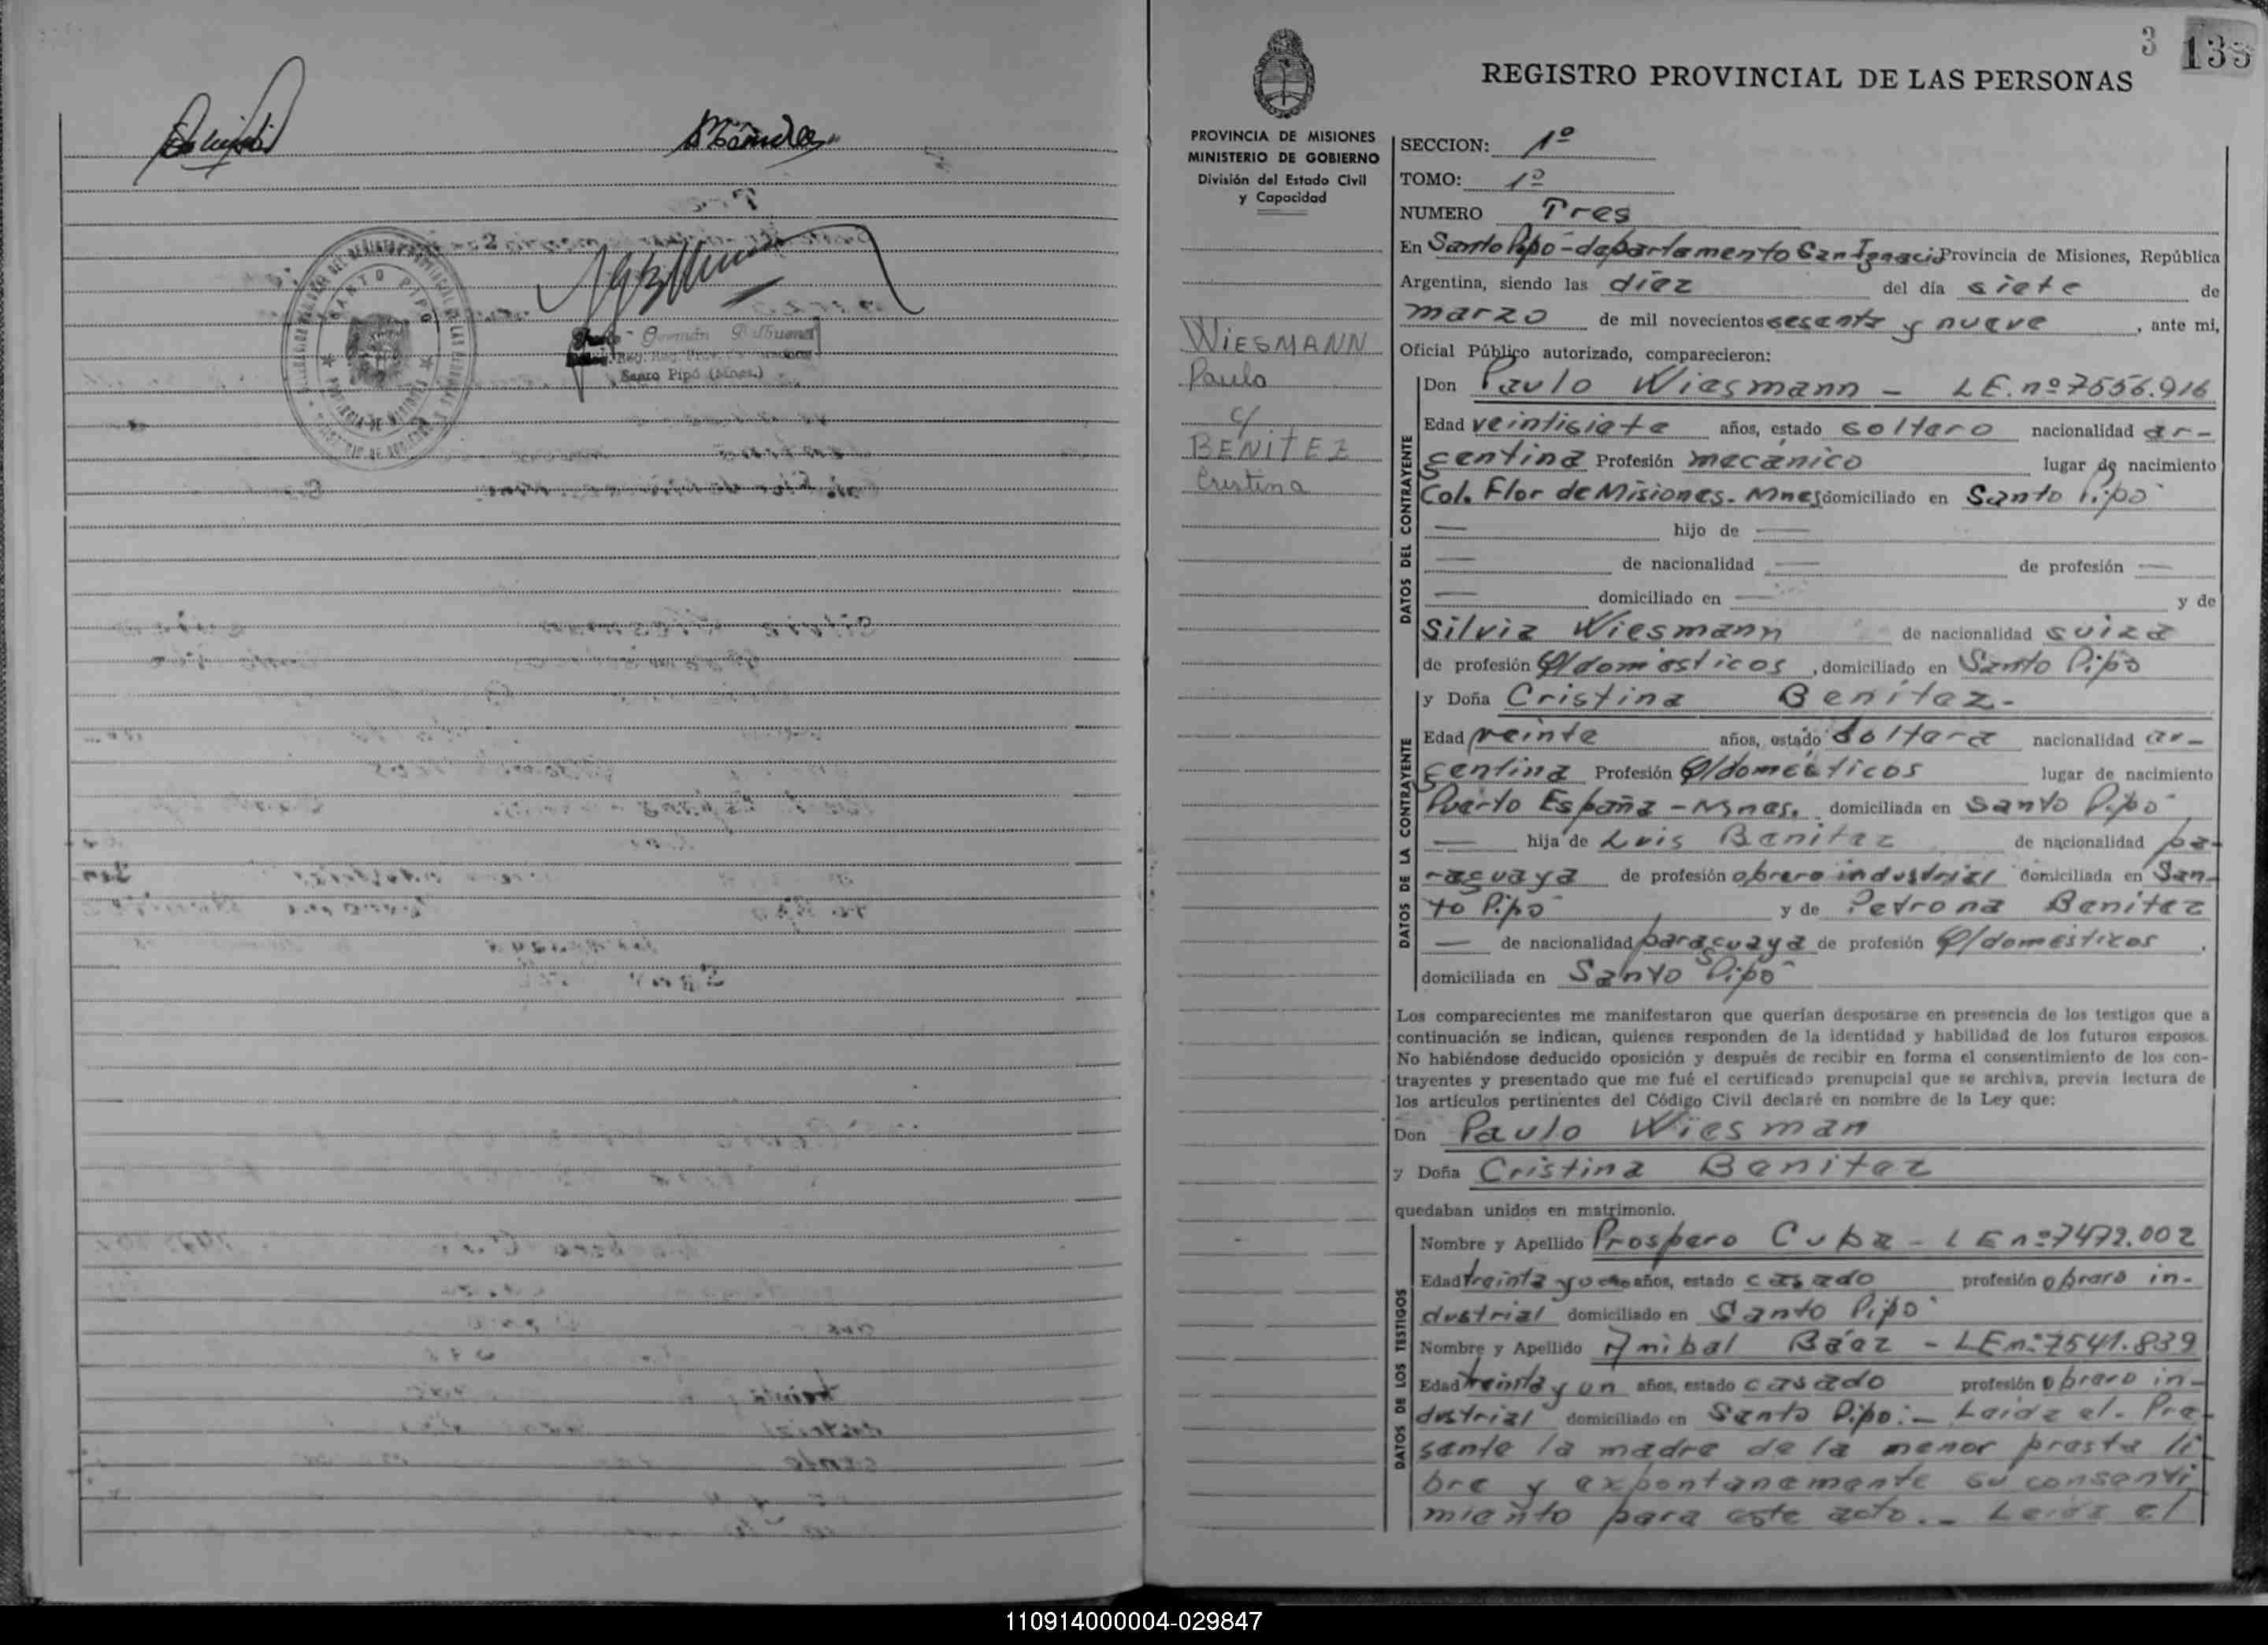 Santo Pipó (Mnes.)
SANTO PIPO
3
138
REGISTRO PROVINCIAL DE LAS PERSONAS
PROVINCIA DE MISIONES
MINISTERIO DE GOBIERNO
División del Estado Civil
y Capacidad
WIESMANN
Paulo
c/
BENITEZ
Cristina
SECCION: 1º
TOMO: 1º
NUMERO Tres
En Santo Pipó - departamento San Ignacio Provincia de Misiones, República
Argentina, siendo las diez del día siete de
marzo de mil novecientos sesenta y nueve, ante mi,
Oficial Público autorizado, comparecieron:
DATOS DEL CONTRAYENTE
Don Paulo Wiesmann - LE. nº 7556.916
Edad veintisiete años, estado soltero nacionalidad ar-
gentina Profesión mecánico lugar de nacimiento
Col. Flor de Misiones. Mnes domiciliado en Santo Pipó
— hijo de —
— de nacionalidad — de profesión —
— domiciliado en — y de
Silvia Wiesmann de nacionalidad suiza
de profesión Q/domésticos, domiciliado en Santo Pipó
DATOS DE LA CONTRAYENTE
y Doña Cristina Benitez -
Edad veinte años, estado soltera nacionalidad ar-
gentina Profesión Q/domésticos lugar de nacimiento
Puerto España - Mnes. domiciliada en Santo Pipó
— hija de Luis Benitez de nacionalidad pa-
raguaya de profesión obrero industrial domiciliada en San-
to Pipó y de Petrona Benitez
— de nacionalidad paraguaya de profesión Q/domésticos,
domiciliada en Santo Pipó
Los comparecientes me manifestaron que querían desposarse en presencia de los testigos que a
continuación se indican, quienes responden de la identidad y habilidad de los futuros esposos.
No habiéndose deducido oposición y después de recibir en forma el consentimiento de los con-
trayentes y presentado que me fué el certificado prenupcial que se archiva, previa lectura de
los artículos pertinentes del Código Civil declaré en nombre de la Ley que:
Don Paulo Wiesman
y Doña Cristina Benitez
quedaban unidos en matrimonio.
DATOS DE LOS TESTIGOS
Nombre y Apellido Prospero Cuba - LE nº 7472.002
Edad treinta y ocho años, estado casado profesión obrero in-
dustrial domiciliado en Santo Pipó
Nombre y Apellido Anibal Báez - LE nº 7541.839
Edad treinta y un años, estado casado profesión obrero in-
dustrial domiciliado en Santo Pipó:- Leida el. Pre-
sente la madre de la menor presta li-
bre y expontanemente su consenti-
miento para este acto.- Leida el
110914000004-029847